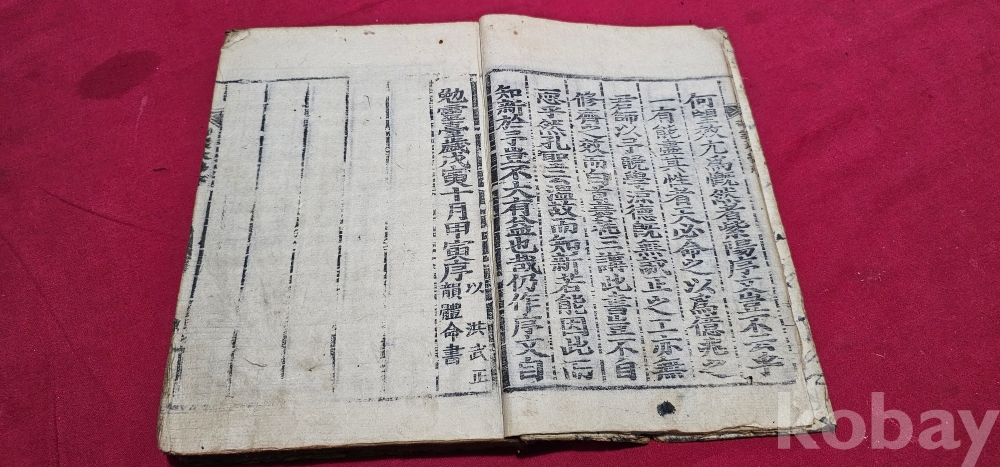 何望效尤爲慨然者紫陽序文豈不云乎
一有能盡其性者天必命之以爲億兆之
君師以予晩學涼德旣無誠正之工亦無
修齊之效而白首衰耗三講此書豈不自
恧乎然孔聖云溫故而知新若能因此而
知新於予豈不大有益也哉仍作序文自
勉靈臺歲戊寅十月甲寅序
以洪武正
韻體命書
kobay